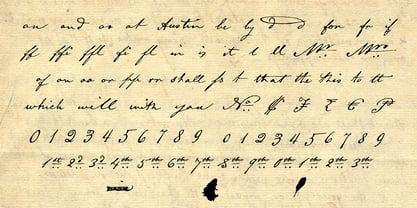 an and as at Austin be by d d for fr if
ff ffi ffl fi fl in is it l ll Mr. Mrs.
of on as or pp or shall ss t that the this to tt
which will with you No. ₢ F £ € P
0 1 2 3 4 5 6 7 8 9 0 1 2 3 4 5 6 7 8 9
1st 2d 3d 4th 5th 6th 7th 8th 9th 0th 1th 2th 3th